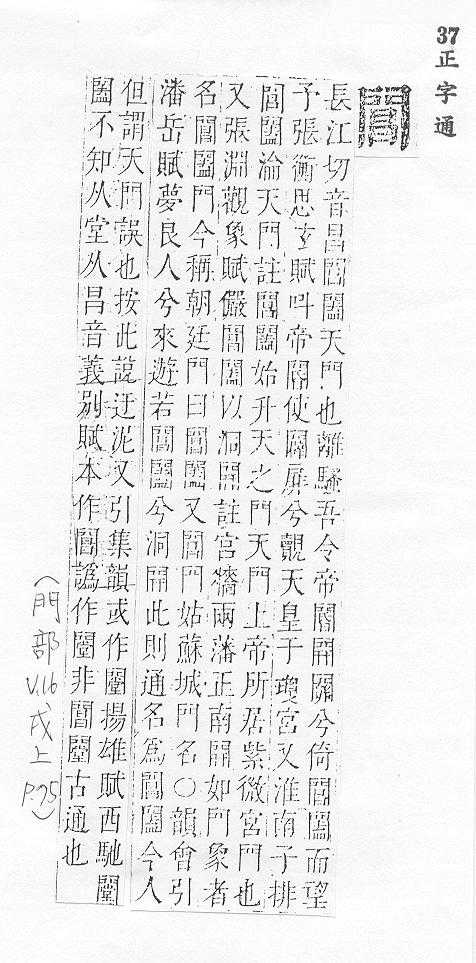 37
正字通
閶
長江切音昌閶闔天門也離騷吾令帝閽開關兮倚閶闔而望
予張衡思玄賦叫帝閽使闢扉兮覿天皇于瓊宮又淮南子排
閶闔淪天門註閶闔始升天之門天門上帝所居紫微宮門也
又張淵觀象賦儼閶闔以洞開註宮牆兩藩正南開如門象者
名閶闔門今稱朝廷門曰閶闔又閶門姑蘇城門名○韻會引
潘岳賦夢良人兮來遊若閶闔兮洞開此則通名為閶闔今人
但謂天門誤也按此說迂泥又引集韻或作闛揚雄賦西馳闛
闔不知从堂从昌音義別賦本作閶譌作闛非閶闛古通也
(門部
V.16
戌上
P.75)